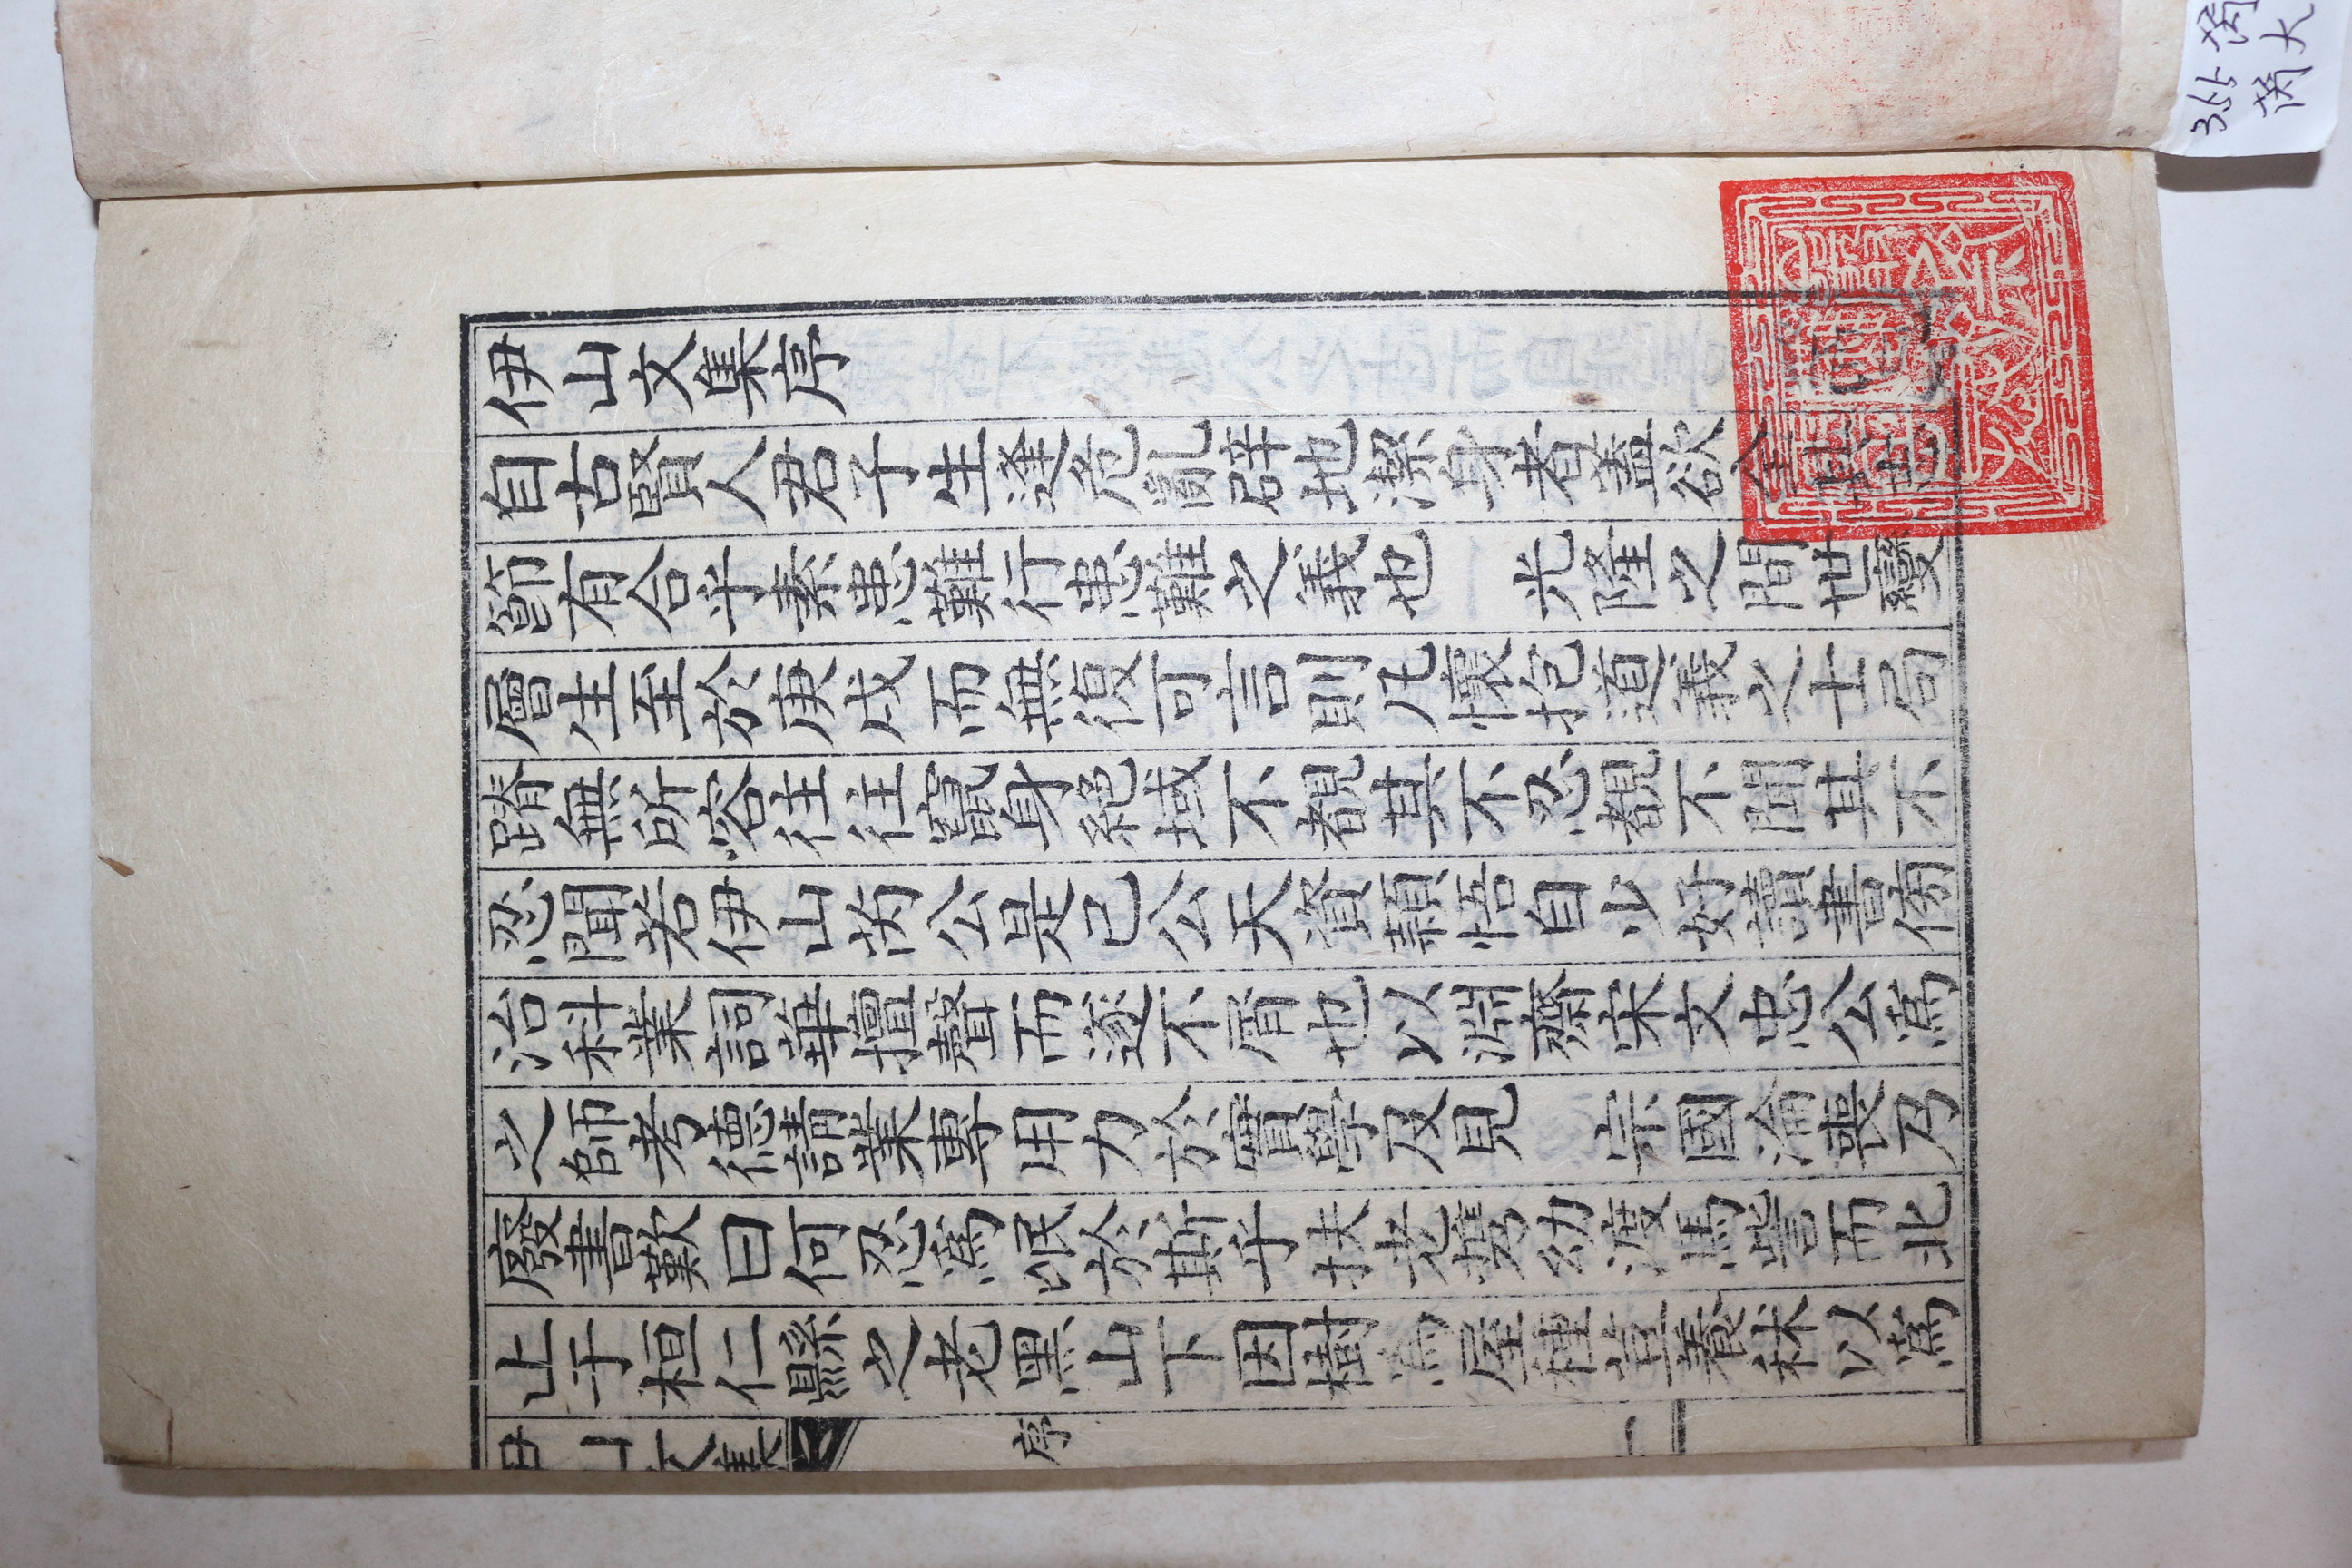 伊山文集序
自古賢人君子生逢危亂辟地潔身者蓋欲全其志
節有合乎素患難行患難之義也　光隆之間世變
層生至於庚戌而無復可言則凡懷抱道義之士局
蹐無所容往往竄身絶域不覩其不忍覩不聞其不
忍聞若伊山芮公是已公天資穎悟自少好讀書傍
治科業詞華擅聲而遂不屑也以淵齋宋文忠公爲
之師考德請業專用力於實學及見　宗國淪喪乃
廢書歎曰何忍爲氓於斯乎扶老携幼渡馬訾而北
止于桓仁縣之老黑山下因樹爲屋種荳養秫以爲
伊山文集
序
一
355 芮
芮大